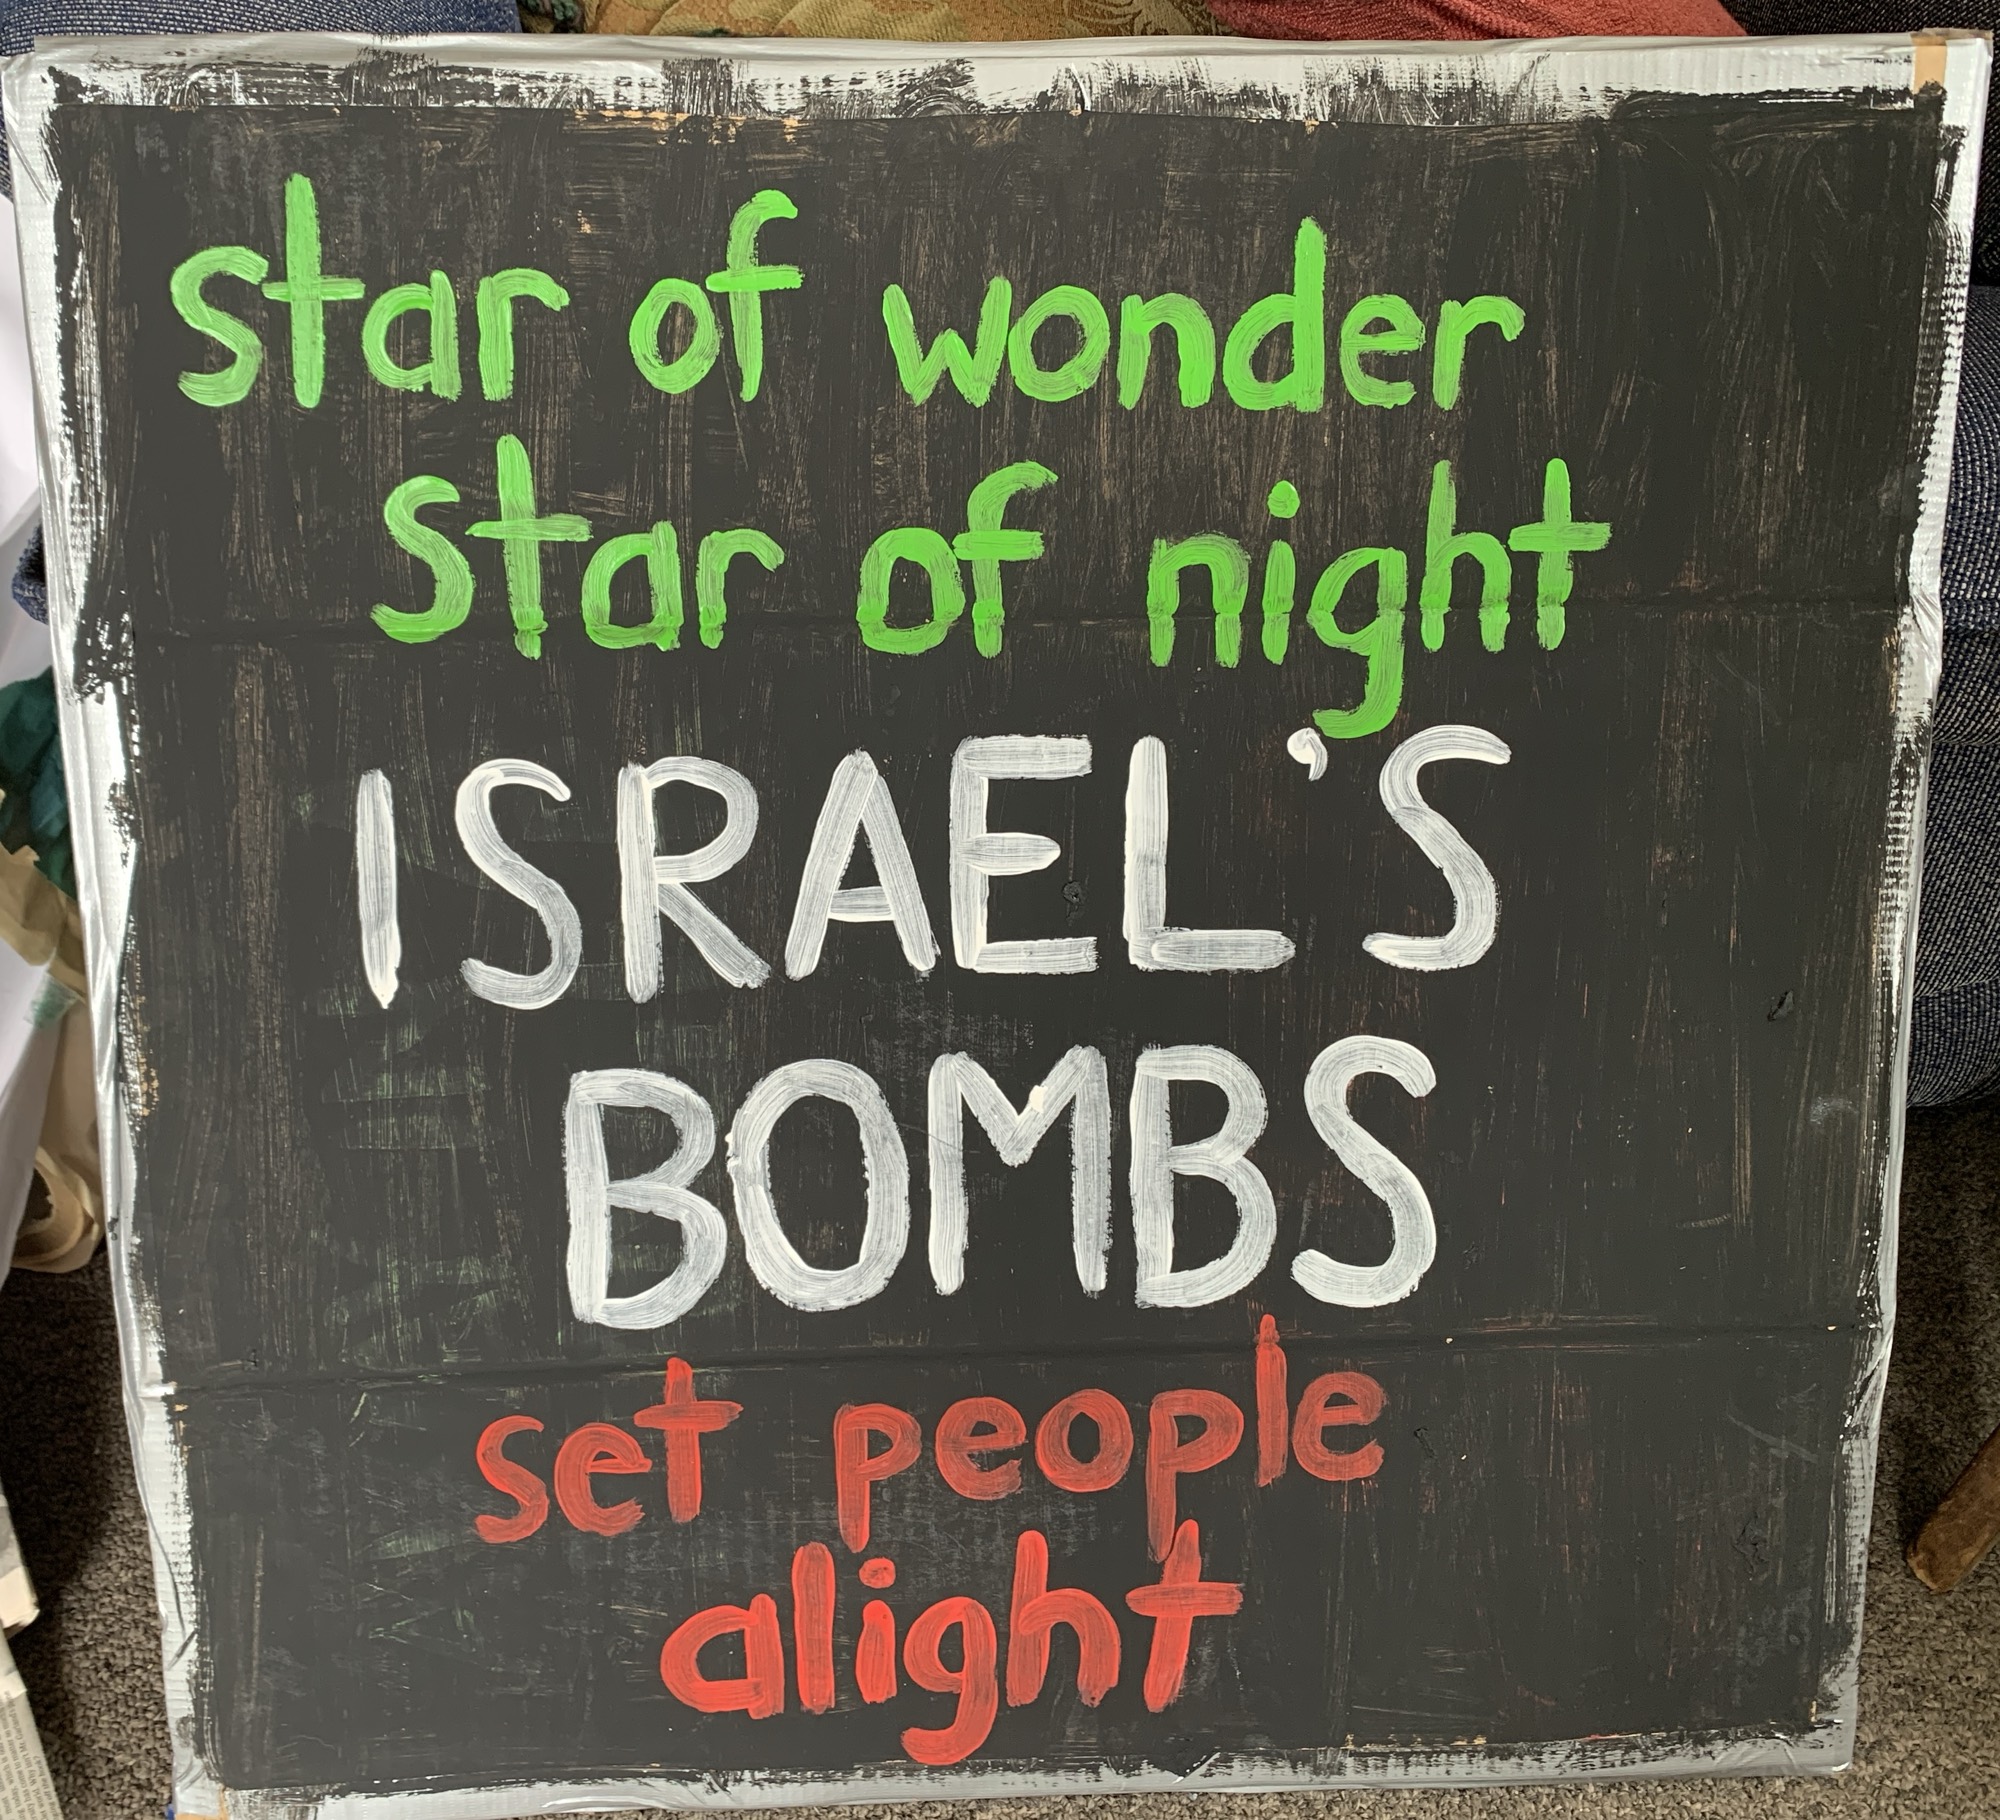 star of wonder
star of night
ISRAEL'S
BOMBS
set people
alight